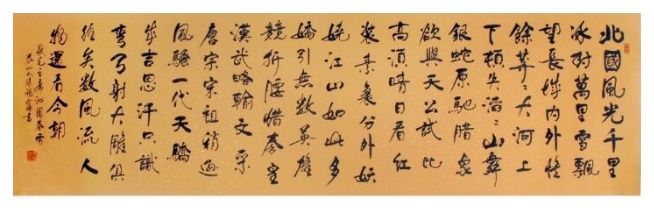 北國風光千里
冰封萬里雪飄
望長城內外惟
餘莽々大河上
下頓失滔々山舞
銀蛇原馳臘象
欲與天公試比
高須晴日看紅
裝素裹分外妖
嬈江山如此多
嬌引無數英雄
競折腰惜秦皇
漢武略輸文采
唐宗宋祖稍遜
風騷一代天驕
成吉思汗只識
彎弓射大雕俱
往矣數風流人
物還看今朝
毛主席沁園春雪